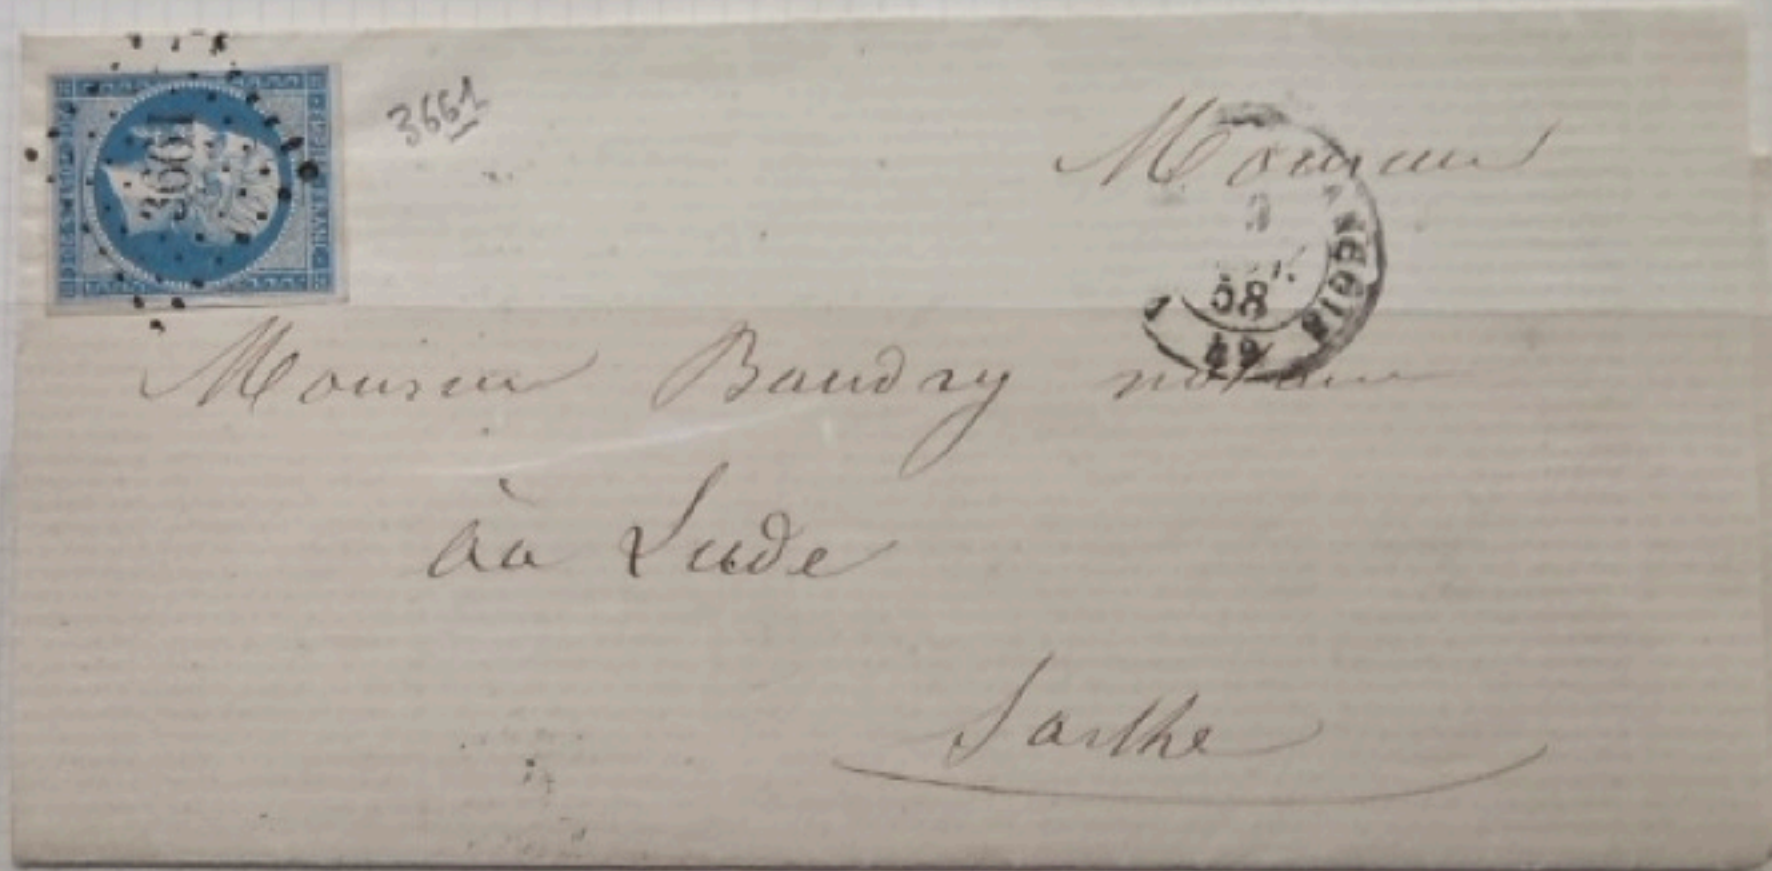 3661
3661
Monsieur
58
49
Monsieur Baudry notaire
au Lude
Sarthe